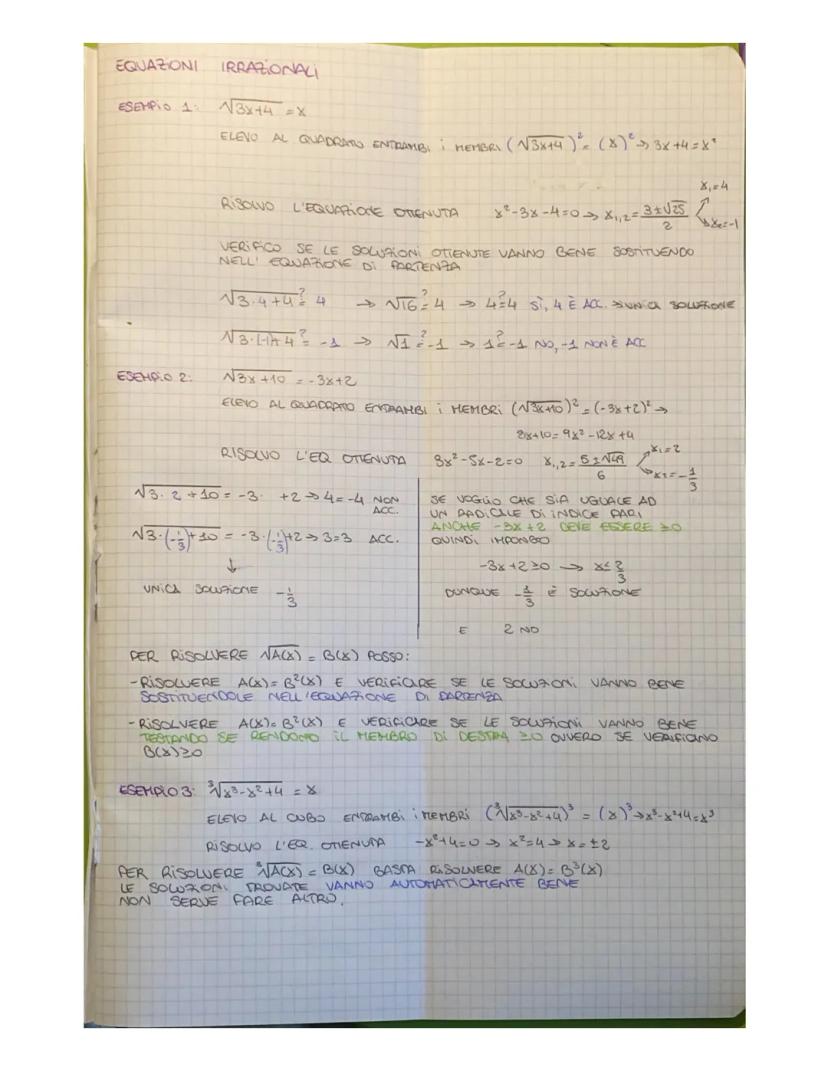 EQUAZIONI IRRAZIONALI
ESEMPIO 1: √3x+4 = x
ELEVO AL QUADRATO ENTRAMBI i MEMBRI (√3x+4)² = (x)² → 3x+4=x²
x₁=4
RISOLVO L'EQUAZIONE OTTENUTA x²-3x-4=0 → x₁,₂= 3±√25 / 2 x₂=-1
VERIFICO SE LE SOLUZIONI OTTENUTE VANNO BENE SOSTITUENDO
NELL'EQUAZIONE DI PARTENZA
√3·4+4 ?= 4 → √16 ?= 4 → 4 ?= 4 SÌ, 4 È ACC. → UNICA SOLUZIONE
√3·(-1)+4 ?= -1 → √1 ?= -1 → 1 ?= -1 NO, -1 NON È ACC
ESEMPIO 2: √3x+10 = -3x+2
ELEVO AL QUADRATO ENTRAMBI i MEMBRI (√3x+10)² = (-3x+2)² →
3x+10= 9x²-12x+4
RISOLVO L'EQ OTTENUTA 3x²-5x-2=0 x₁,₂= 5±√49 / 6 x₁=2 x₂=-1/3
√3·2+10 = -3· +2 → 4=-4 NON ACC.
√3·(-1/3)+10 = -3·(-1/3)+2 → 3=3 ACC.
↓
UNICA SOLUZIONE -1/3
SE VOGLIO CHE SIA UGUALE AD
UN RADICALE DI INDICE PARI
ANCHE -3x+2 DEVE ESSERE ≥0
QUINDI IMPONGO
-3x+2≥0 → x≤2/3
DUNQUE -1/3 È SOLUZIONE
E 2 NO
PER RISOLVERE √A(x) = B(x) POSSO:
- RISOLVERE A(x)=B²(x) E VERIFICARE SE LE SOLUZIONI VANNO BENE
SOSTITUENDOLE NELL'EQUAZIONE DI PARTENZA
- RISOLVERE A(x)=B²(x) E VERIFICARE SE LE SOLUZIONI VANNO BENE
TESTANDO SE RENDONO IL MEMBRO DI DESTRA ≥0 OVVERO SE VERIFICANO
B(x)≥0
ESEMPIO 3: ³√x³-x²+4 = x
ELEVO AL CUBO ENTRAMBI i MEMBRI (³√x³-x²+4)³ = (x)³ → x³-x²+4=x³
RISOLVO L'EQ. OTTENUTA -x²+4=0 → x²=4 → x=±2
PER RISOLVERE ³√A(x) = B(x) BASTA RISOLVERE A(x)=B³(x)
LE SOLUZIONI TROVATE VANNO AUTOMATICAMENTE BENE
NON SERVE FARE ALTRO.